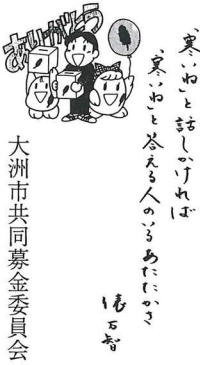 ありがとう
「寒いね」と話しかければ
「寒いね」と答える人のいるあたたかさ
俵万智
大洲市共同募金委員会